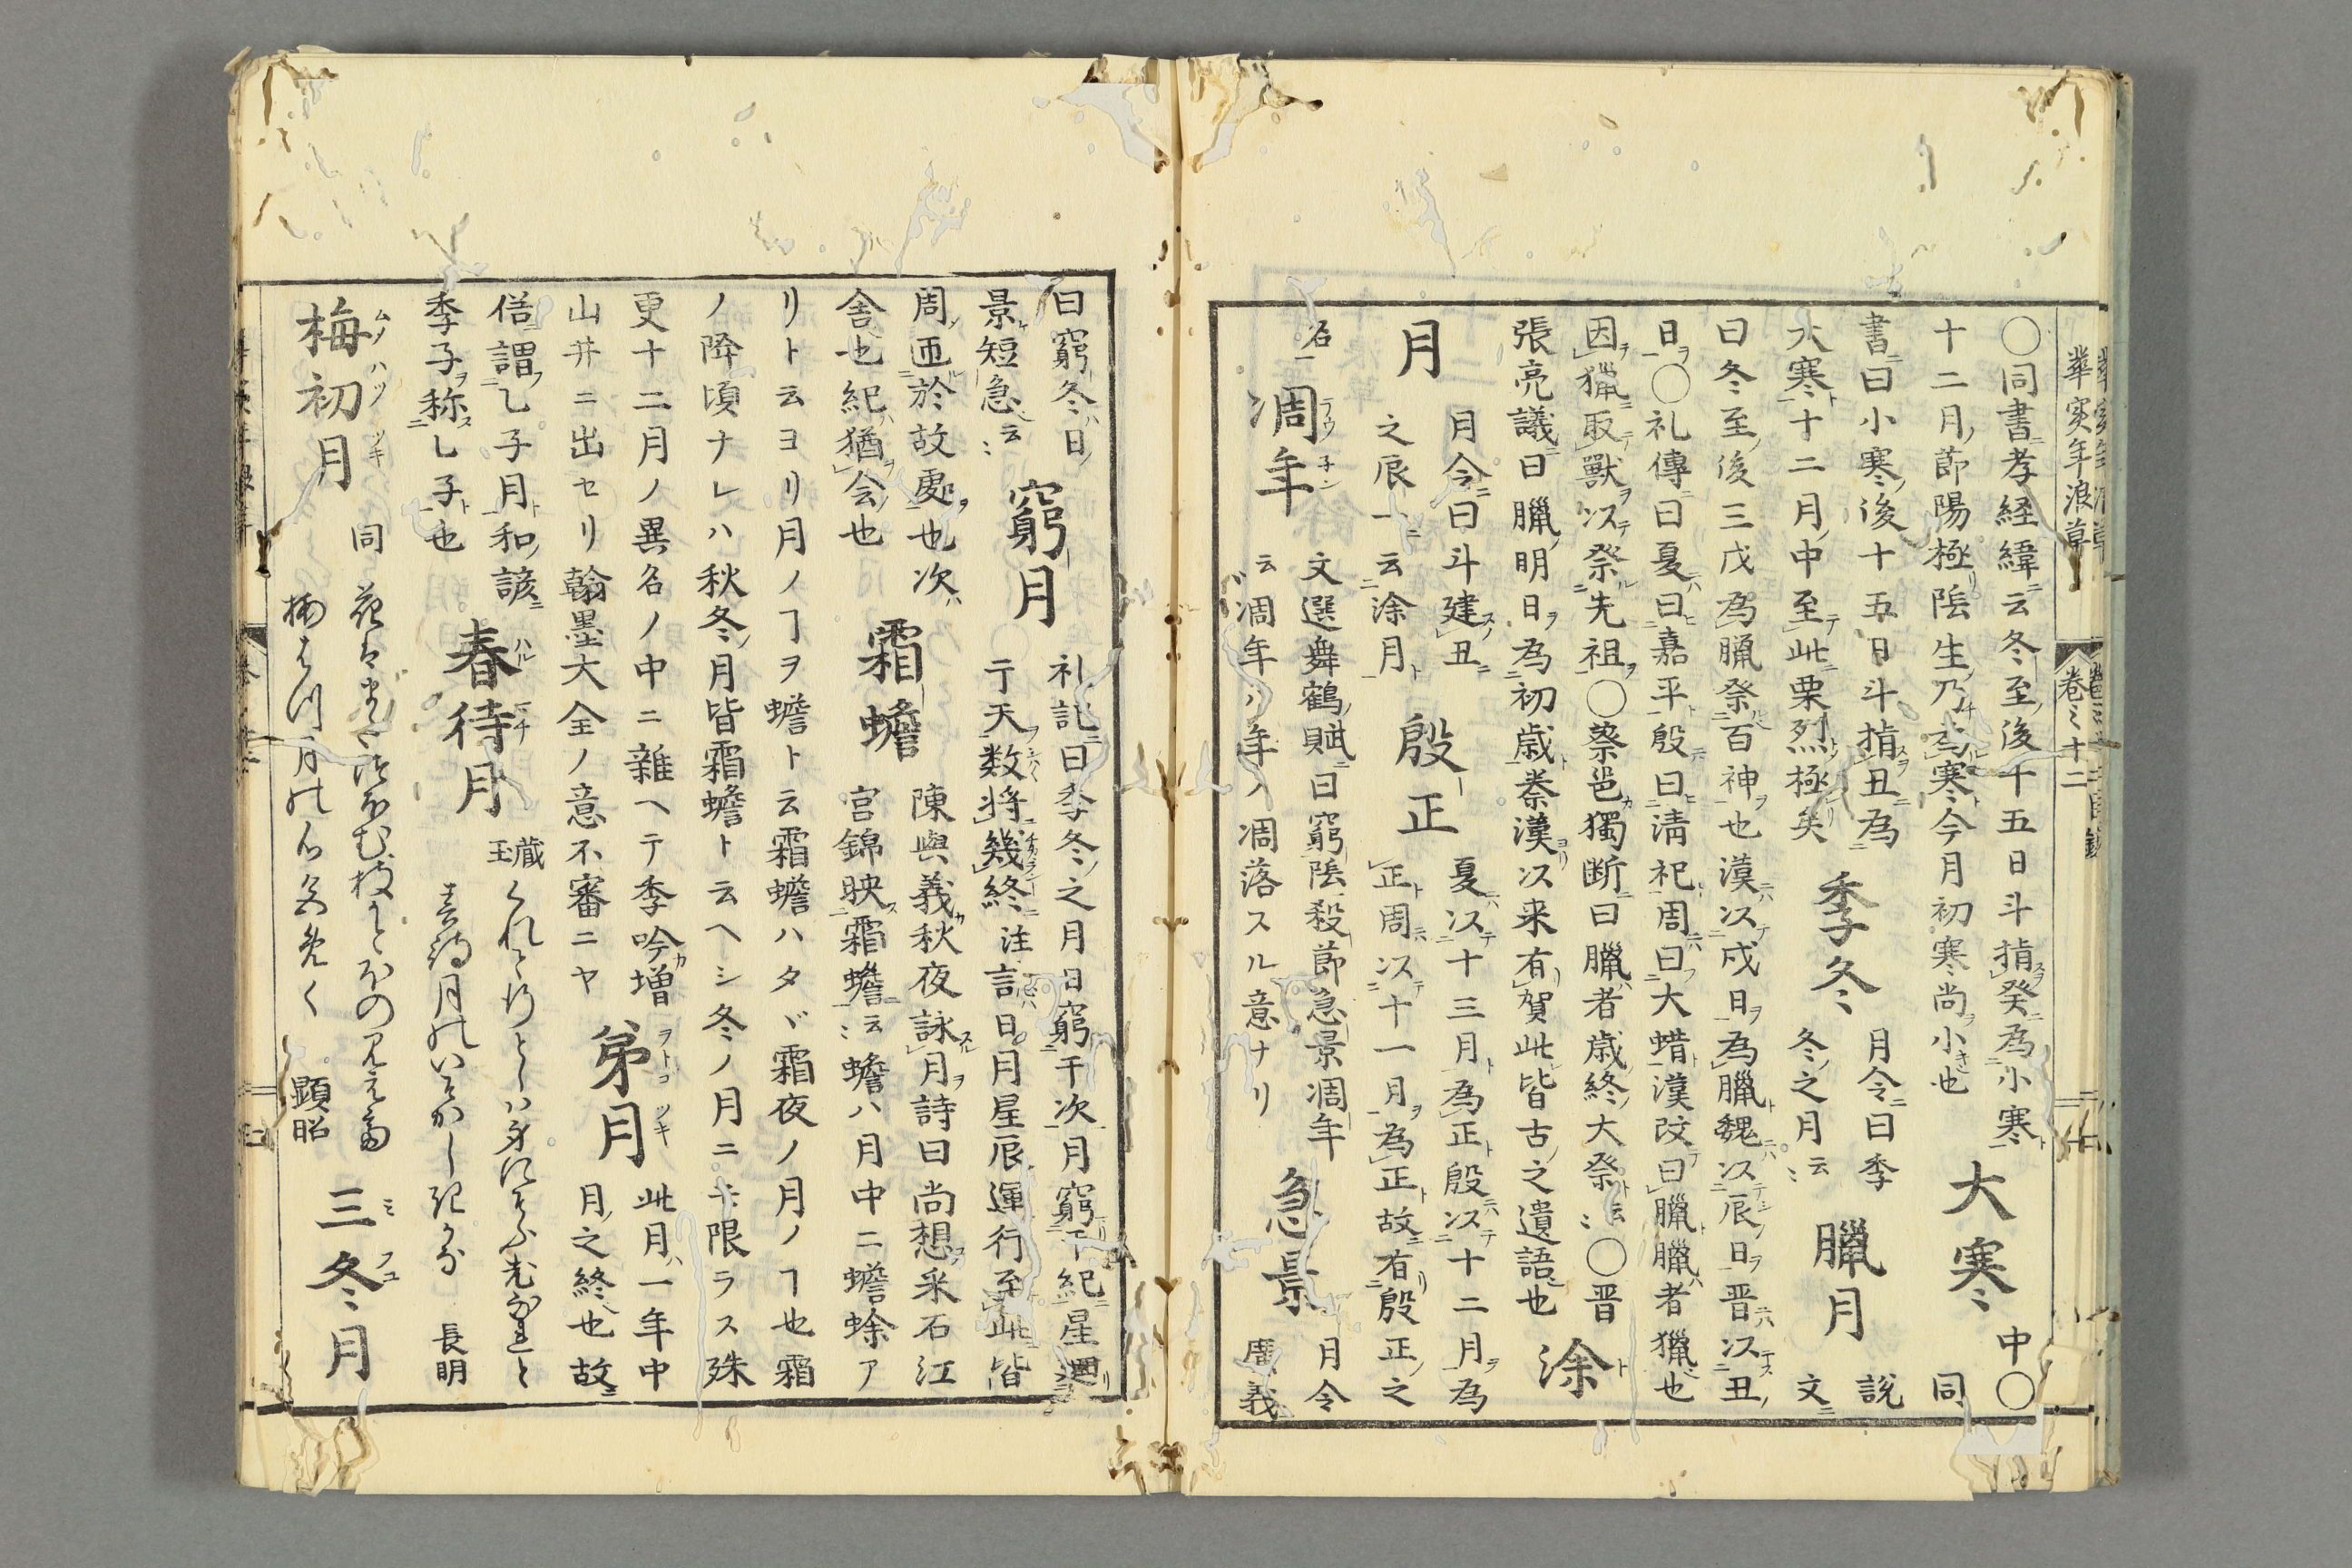 華実年浪草
巻之十二
〇同書孝経緯云冬至後十五日斗指癸為小寒
大寒
中〇同
十二月節陽極陰生乃為寒今月初寒尚小也
書曰小寒後十五日斗指丑為
大寒十二月中至此栗烈極矣
季冬
月令曰季
冬之月云〻
臘月
説
文
曰冬至後三戌為臘祭百神也漢以戌日為臘魏以辰日晋以丑
日〇礼傳曰夏曰嘉平殷曰清祀周曰大蜡漢改曰臘臘者獵也
因獵取獣以祭先祖〇蔡邕獨断曰臘者歳終大祭云〻〇晋
張亮議曰臘明日為初歳秦漢以来有賀此皆古之遺語也
涂
月
月令曰斗建丑
之辰一云涂月
殷正
夏以十三月為正殷以十二月為
正周以十一月為正故有殷正之
名
凋年
文選舞鶴賦曰窮陰殺節急景凋年
云凋年ハ年ノ凋落スル意ナリ
急景
月令
廣義
曰窮冬日
景短急云〻
窮月
礼記曰季冬之月日窮于次月窮于紀星廻
于天数将幾終注言日月星辰運行至此皆
周匝於故處也次
舎也紀猶会也
霜蟾
陳與義秋夜詠月詩曰尚想采石江
宮錦映霜蟾云〻蟾ハ月中ニ蟾蜍ア
リト云ヨリ月ノヿヲ蟾ト云霜蟾ハタヾ霜夜ノ月ノヿ也霜
ノ降頃ナレハ秋冬ノ月皆霜蟾ト云ヘシ冬ノ月ニ限ラス殊
更十二月ノ異名ノ中ニ雑ヘテ季吟増
山井ニ出セリ翰墨大全ノ意不審ニヤ
弟月
此月ハ一年中
月之終也故
俗謂乙子月和諺
季子称乙子也
春待月
蔵玉
長明
梅初月
同
顕昭
三冬月